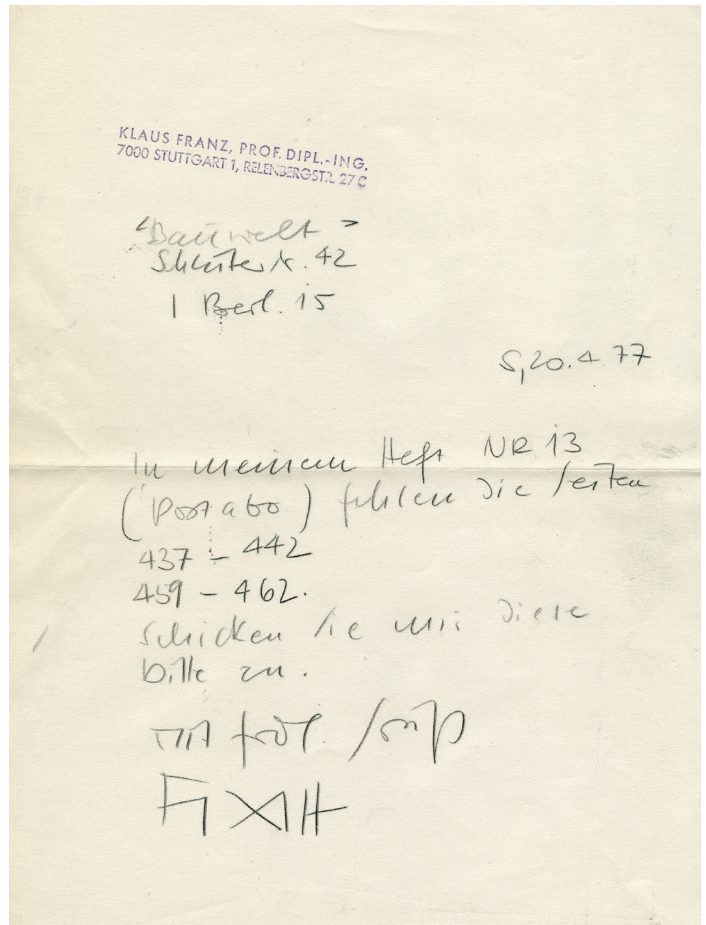 KLAUS FRANZ, PROF. DIPL.-ING.
7000 STUTTGART 1, RELENBERGSTR. 27 C
"Bauwelt"
Schlüterstr. 42
1 Berl. 15
S, 20. 4. 77
In meinem Heft NR 13
(Postabo) fehlen die Seiten
437 – 442
459 – 462.
Schicken Sie mir diese
bitte zu.
mit frdl. Gruß